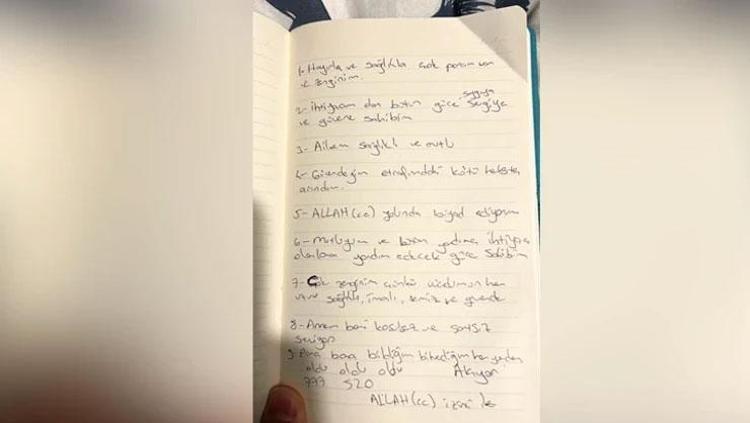 1- Hayırla ve sağlıkla çok param var
ve zenginim.
2- İhtiyacım olan bütün güce saygıya sevgiye
ve güvene sahibim
3- Ailem sağlıklı ve mutlu
4- Güvendeyim etrafımdaki kötü herkesten
arındım.
5- ALLAH (cc) yolunda
6- Mutluyum ve bütün yardıma ihtiyacı
olanlara yardım edecek güce sahibim
7- Çok zenginim çünkü vücudumun her
sağlıklı, temiz ve güvende
8- Annem beni koşulsuz ve
seviyor
9- Para bana bildiğim bilmediğim her yerden
oldu oldu oldu Akıyor
777 520
ALLAH (cc) izni ile